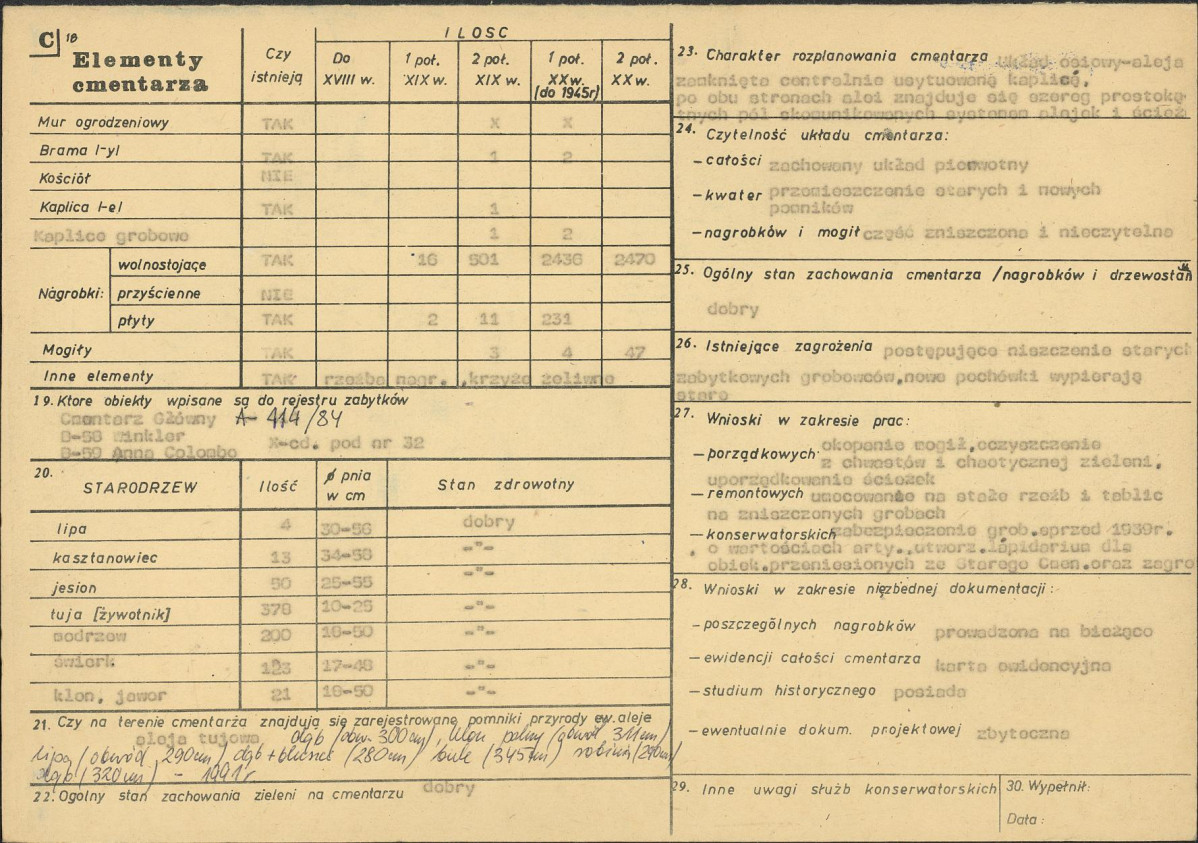 C 18 Elementy
cmentarza
Czy
istnieją
ILOSC
Do
XVIII w.
1 poł.
XIX w.
2 poł.
XIX w.
1 poł.
XX w.
(do 1945r)
2 poł.
XX w.
Mur ogrodzeniowy TAK x x
Brama l-yl TAK 1 2
Kościół NIE
Kaplica l-el TAK 1
Kaplice grobowe 1 2
Nagrobki: wolnostojące TAK 16 501 2436 2470
przyścienne NIE
płyty TAK 2 11 231
Mogiły TAK 3 4 47
Inne elementy TAK rzeźba nagr. ,krzyże żeliwne
19. Ktore obiekty wpisane są do rejestru zabytków
Cmentarz Główny A- 414/84
B-58 Winkler
B-59 Anna Colombo X-cd. pod nr 32
20. STARODRZEW Ilość ø pnia
w cm Stan zdrowotny
lipa 4 30-56 dobry
kasztanowiec 13 34-58 -"-
jesion 50 25-55 -"-
tuja [żywotnik] 378 10-25 -"-
modrzew 200 18-50 -"-
świerk 123 17-48 -"-
klon, jawor 21 18-50 -"-
21. Czy na terenie cmentarża znajdują się zarejestrowane pomniki przyrody ew. aleje
aleja tujowa dąb (obw. 300cm), klon polny (obwód 311cm)
lipa (obwód 290cm) dąb + bluszcz (280cm) buk (345cm) robinia (290cm)
dąb (320cm) - 1991r.
22. Ogolny stan zachowania zieleni na cmentarzu dobry
23. Charakter rozplanowania cmentarza układ osiowy-aleja
zamknięta centralnie usytuowaną kaplicą,
po obu stronach alei znajduje się szereg prostoką-
tnych pól skomunikowanych systemem alejek i ścież
24. Czytelność układu cmentarza:
- całości zachowany układ pierwotny
- kwater przemieszczenie starych i nowych
pomników
- nagrobków i mogił część zniszczona i nieczytelna
25. Ogólny stan zachowania cmentarza /nagrobków i drzewostan
dobry
26. Istniejące zagrożenia postępujące niszczenie starych
zabytkowych grobowców,nowe pochówki wypierają
stare
27. Wnioski w zakresie prac:
- porządkowych okopanie mogił,oczyszczenie
z chwastów i chaotycznej zieleni,
uporządkowanie ścieżek
- remontowych umocowanie na stałe rzeźb i tablic
na zniszczonych grobach
- konserwatorskich zabezpieczenie grob.sprzed 1939r.
o wartościach arty.,utworz.lapidarium dla
obiek.przeniesionych ze Starego Cmen.oraz zagro
28. Wnioski w zakresie niezbednej dokumentacji:
- poszczególnych nagrobków prowadzona na bieżąco
- ewidencji całości cmentarza karta ewidencyjna
- studium historycznego posiada
- ewentualnie dokum. projektowej zbyteczna
29. Inne uwagi służb konserwatorskich
30. Wypełnił:
Data: